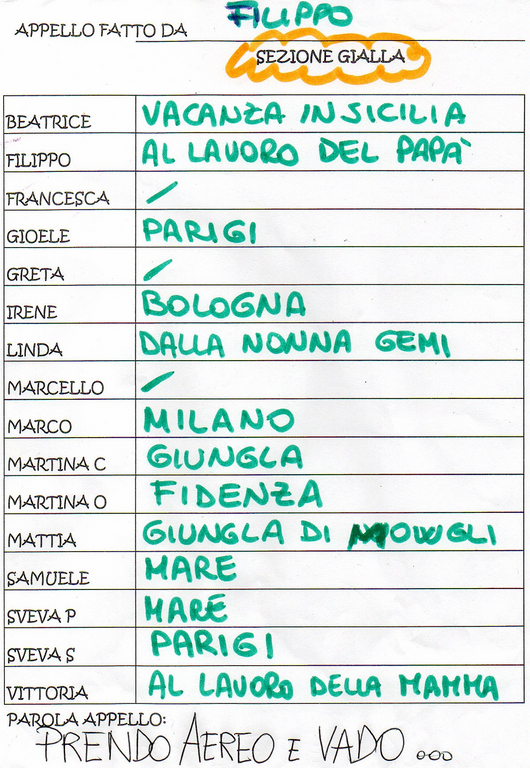 APPELLO FATTO DA FILIPPO
SEZIONE GIALLA
BEATRICE VACANZA IN SICILIA
FILIPPO AL LAVORO DEL PAPA'
FRANCESCA /
GIOELE PARIGI
GRETA /
IRENE BOLOGNA
LINDA DALLA NONNA GEMI
MARCELLO /
MARCO MILANO
MARTINA C GIUNGLA
MARTINA O FIDENZA
MATTIA GIUNGLA DI MOWGLI
SAMUELE MARE
SVEVA P MARE
SVEVA S PARIGI
VITTORIA AL LAVORO DELLA MAMMA
PAROLA APPELLO:
PRENDO AEREO E VADO ...